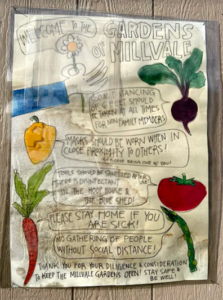 WELCOME TO THE GARDENS
OF MILLVALE
SOCIAL DISTANCING
OF 6 FEET SHOULD
BE TAKEN AT ALL TIMES
FOR NON FAMILY MEMBERS!
MASKS SHOULD BE WORN WHEN IN
CLOSE PROXIMITY TO OTHERS!
TOOLS SHOULD BE
DISINFECTANT
IN THE HOOP HOUSE &
THE BLUE SHED!
PLEASE STAY HOME IF YOU
ARE SICK!
NO GATHERING OF PEOPLE
WITHOUT SOCIAL DISTANCE!
THANK YOU FOR YOUR DILIGENCE & CONSIDERATION
TO KEEP THE MILLVALE GARDENS OPEN! STAY SAFE &
BE WELL!